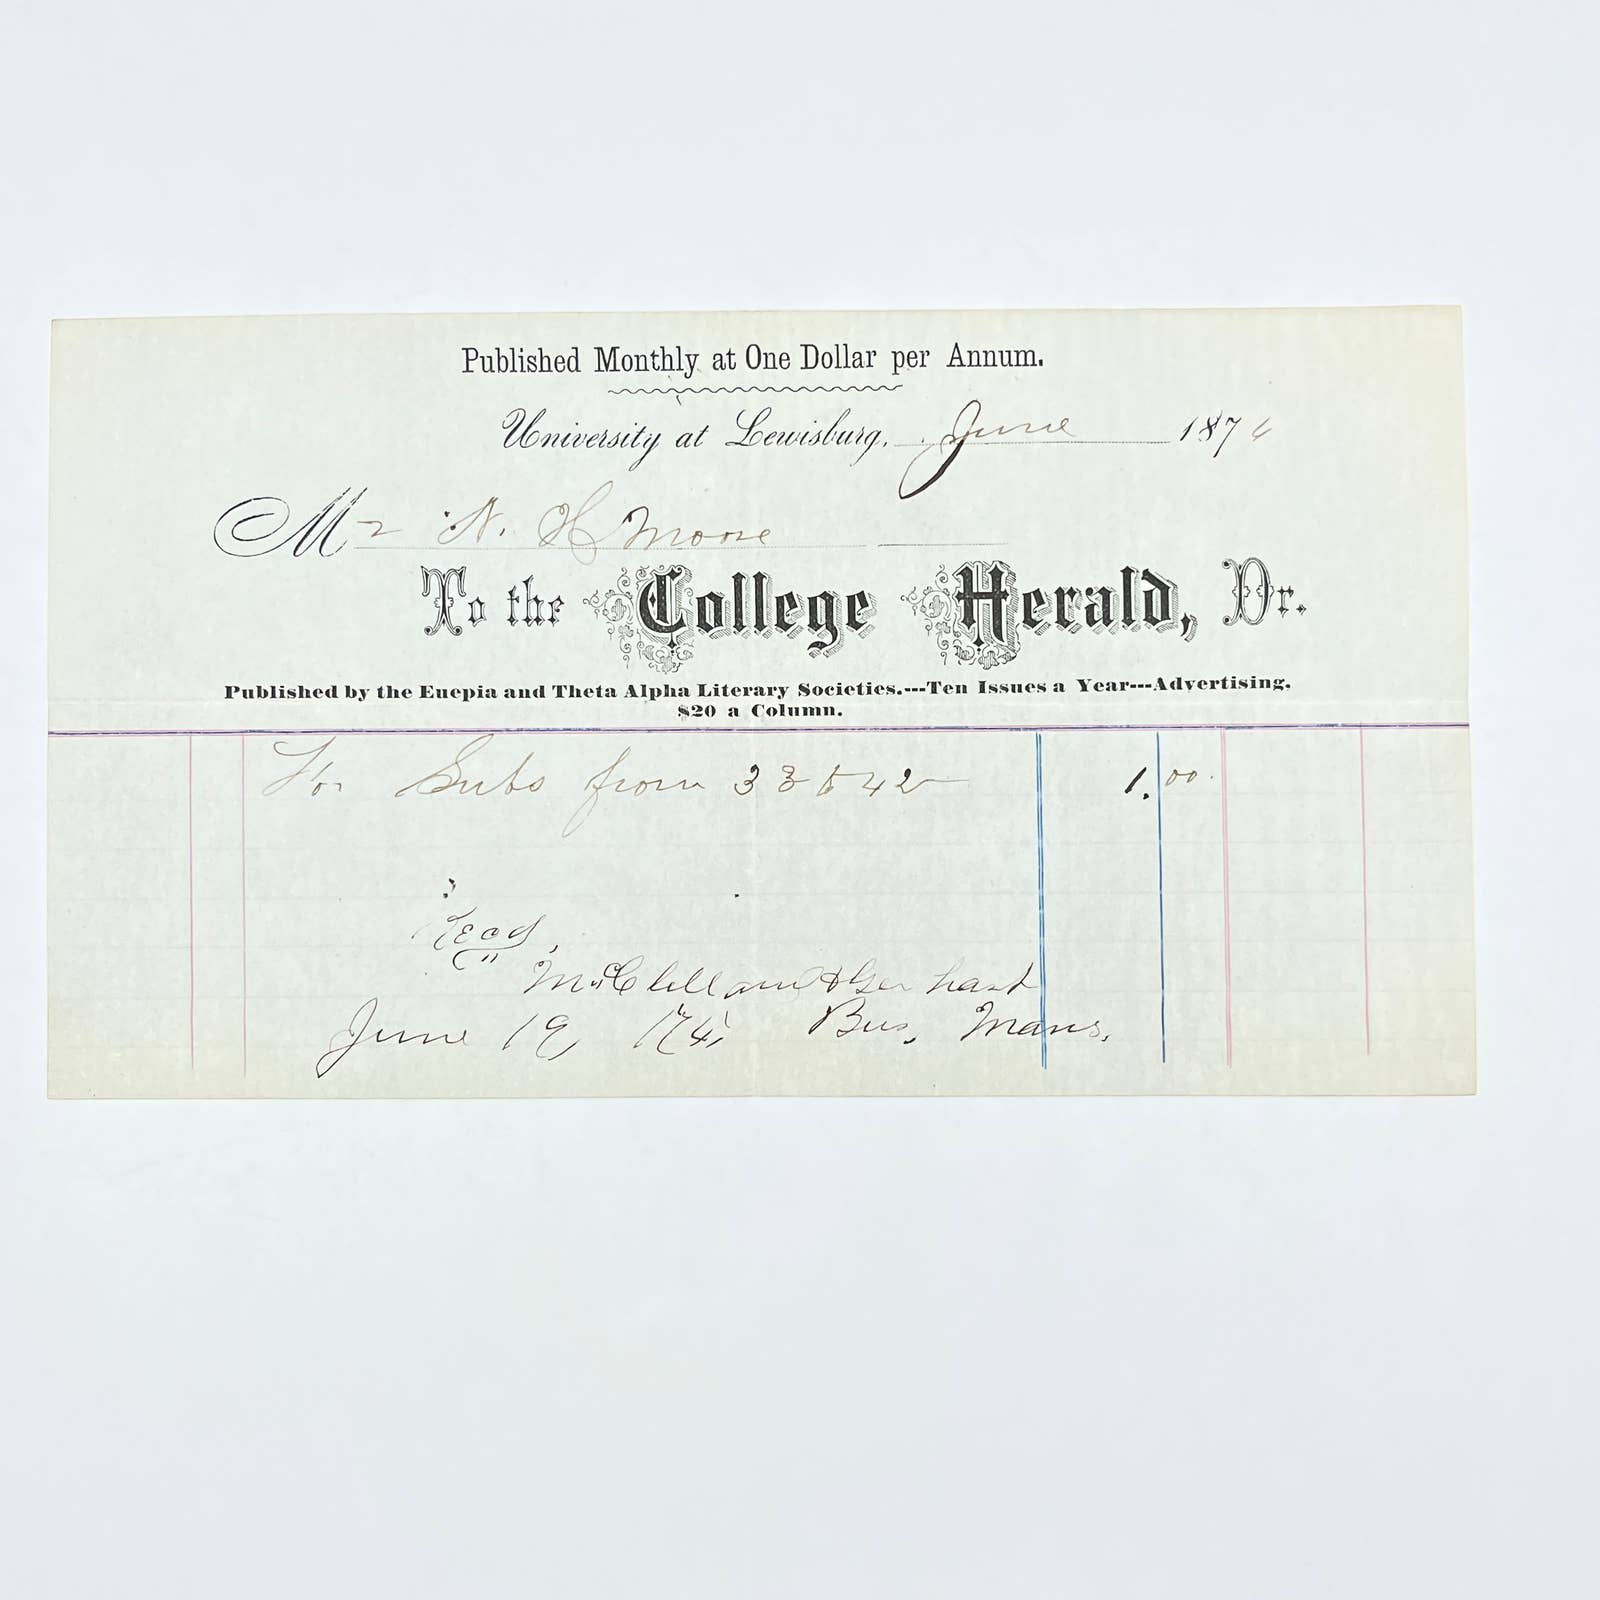 Published Monthly at One Dollar per Annum.
University at Lewisburg, June 1874
Mr N. H Moore
To the College Herald, Dr.
Published by the Euepia and Theta Alpha Literary Societies.---Ten Issues a Year---Advertising,
$20 a Column.
For Subs from 33 to 42 1.00
Recd,
McClelland & Gerhart
June 19, '74, Bus, Mans.